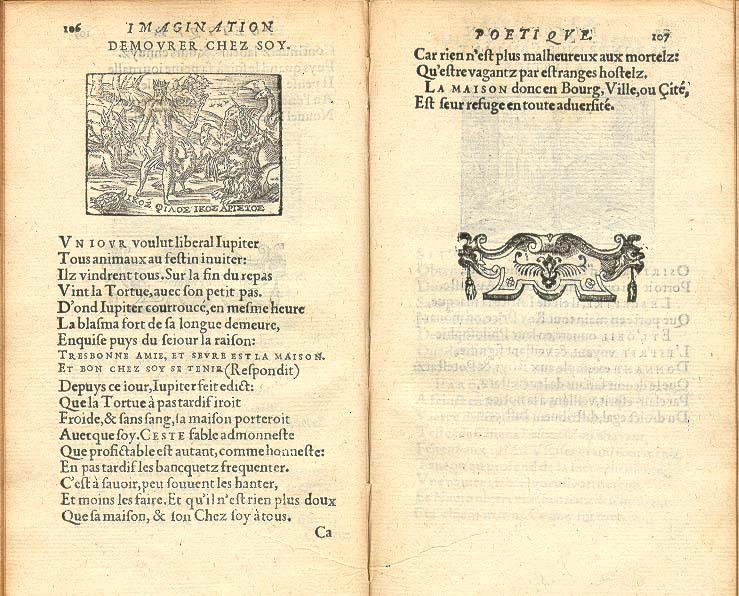 106 IMAGINATION
DEMOVRER CHEZ SOY.
ΙΚΟΣ ΦΙΛΟΣ ΙΚΟΣ ΑΡΙΣΤΟΣ
VN IOVR voulut liberal Iupiter
Tous animaux au festin inuiter:
Ilz vindrent tous. Sur la fin du repas
Vint la Tortue, auec son petit pas.
D'ond Iupiter courroucé, en mesme heure
La blasma fort de sa longue demeure,
Enquise puys du seiour la raison:
TRESBONNE AMIE, ET SEVRE EST LA MAISON.
ET BON CHEZ SOY SE TENIR (Respondit)
Depuys ce iour, Iupiter feit edict:
Que la Tortue à pas tardif iroit
Froide, & sans sang, sa maison porteroit
Auecque soy. CESTE fable admonneste
Que profictable est autant, comme honneste:
En pas tardif les bancquetz frequenter.
C'est à sauoir, peu souuent les hanter,
Et moins les faire. Et qu'il n'est rien plus doux
Que sa maison, & son Chez soy à tous.
Ca
POETIQVE. 107
Car rien n'est plus malheureux aux mortelz:
Qu'estre vagantz par estranges hostelz.
LA MAISON donc en Bourg, Ville, ou Çité,
Est seur refuge en toute aduersité.